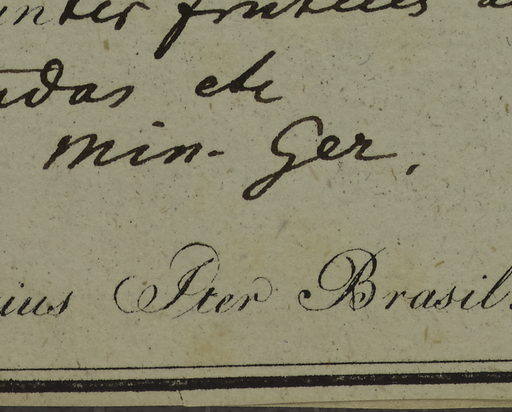 inter frutices
adas etc
Min. Ger.
ius Iter Brasil.